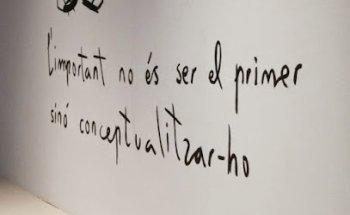 L'important no és ser el primer
sinó conceptualitzar-ho